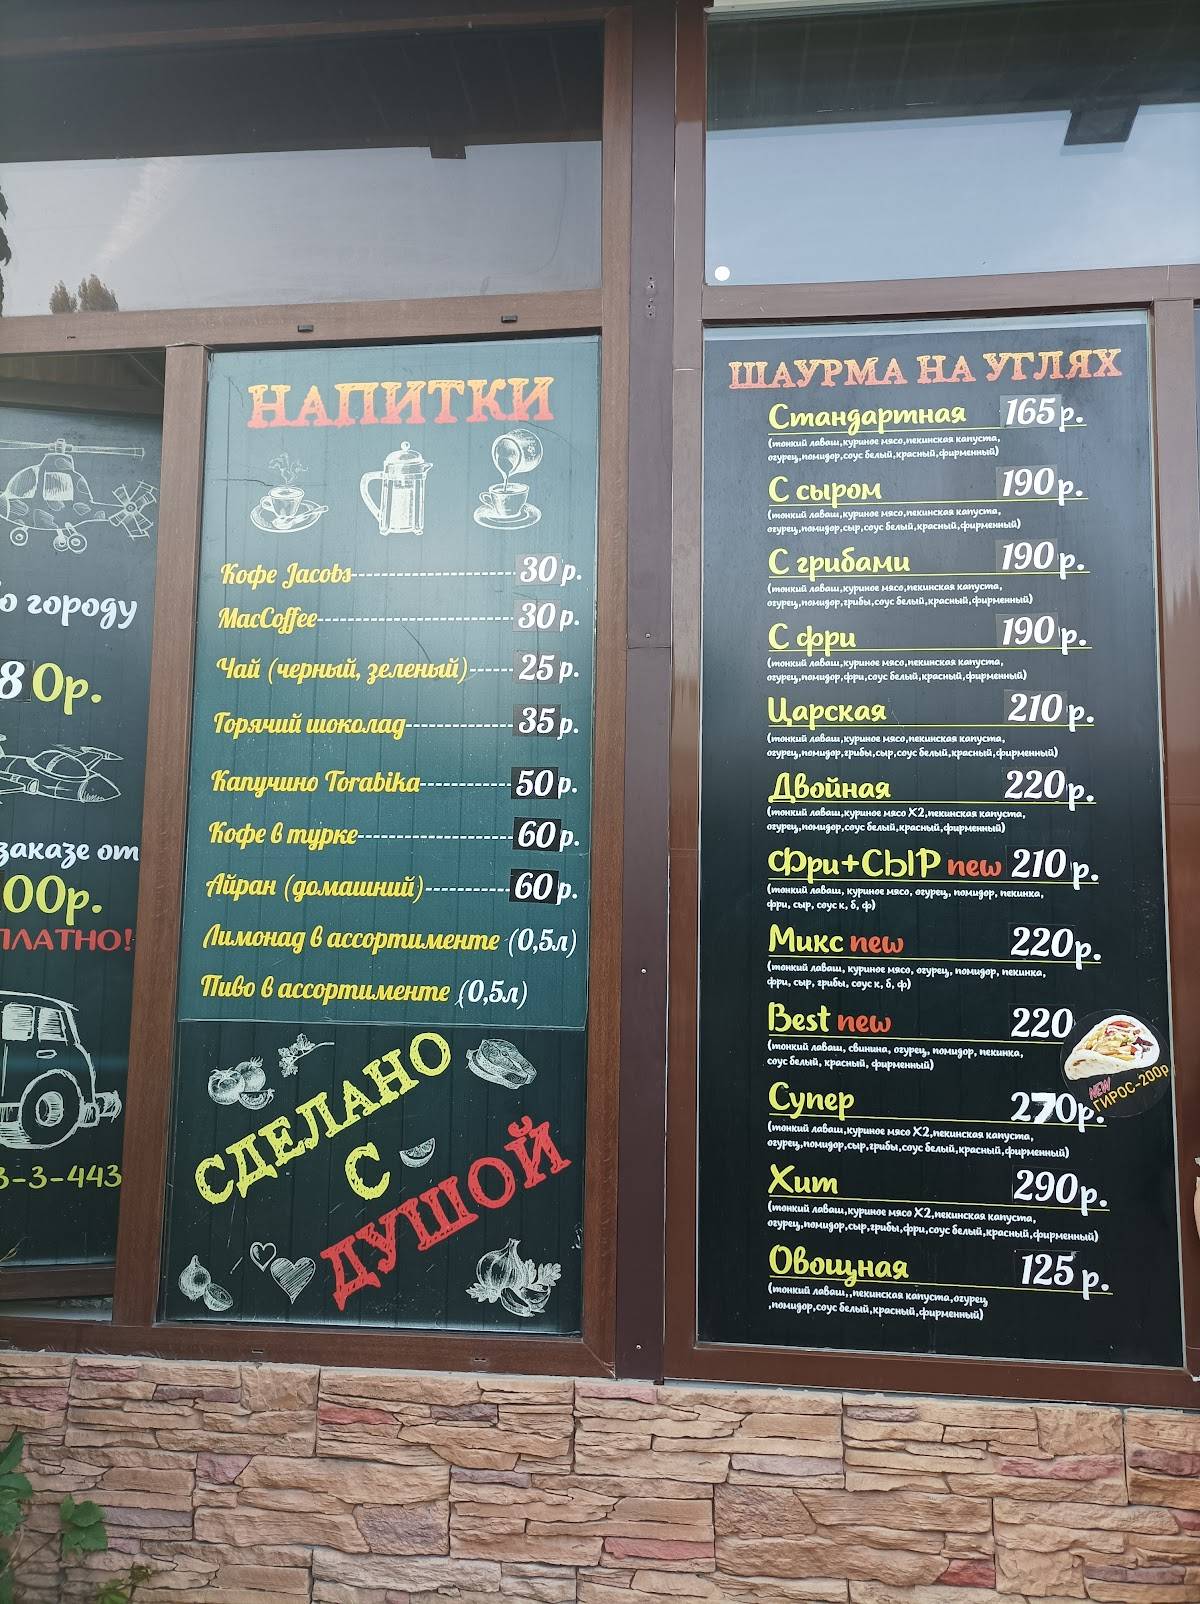 о городу
80р.
заказе от
00р.
ПЛАТНО!
3-3-443
НАПИТКИ
Кофе Jacobs 30 р.
MacCoffee 30 р.
Чай (черный, зеленый) 25 р.
Горячий шоколад 35 р.
Капучино Torabika 50 р.
Кофе в турке 60 р.
Айран (домашний) 60 р.
Лимонад в ассортименте (0,5л)
Пиво в ассортименте (0,5л)
СДЕЛАНО
С
ДУШОЙ
ШАУРМА НА УГЛЯХ
Стандартная 165р.
(тонкий лаваш,куриное мясо,пекинская капуста,
огурец,помидор,соус белый,красный,фирменный)
С сыром 190р.
(тонкий лаваш,куриное мясо,пекинская капуста,
огурец,помидор,сыр,соус белый,красный,фирменный)
С грибами 190р.
(тонкий лаваш,куриное мясо,пекинская капуста,
огурец,помидор,грибы,соус белый,красный,фирменный)
С фри 190р.
(тонкий лаваш,куриное мясо,пекинская капуста,
огурец,помидор,фри,соус белый,красный,фирменный)
Царская 210р.
(тонкий лаваш,куриное мясо,пекинская капуста,
огурец,помидор,грибы,сыр,соус белый,красный,фирменный)
Двойная 220р.
(тонкий лаваш,куриное мясо Х2,пекинская капуста,
огурец,помидор,соус белый,красный,фирменный)
Фри+СЫР new 210р.
(тонкий лаваш, куриное мясо, огурец, помидор, пекинка,
фри, сыр, соус к, б, ф)
Микс new 220р.
(тонкий лаваш, куриное мясо, огурец, помидор, пекинка,
фри, сыр, грибы, соус к, б, ф)
Best new 220
(тонкий лаваш, свинина, огурец, помидор, пекинка,
соус белый, красный, фирменный)
NEW
ГИРОС-200р
Супер 270р.
(тонкий лаваш,куриное мясо Х2,пекинская капуста,
огурец,помидор,сыр,грибы,соус белый,красный,фирменный)
Хит 290р.
(тонкий лаваш,куриное мясо Х2,пекинская капуста,
огурец,помидор,сыр,грибы,фри,соус белый,красный,фирменный)
Овощная 125р.
(тонкий лаваш,,пекинская капуста,огурец
,помидор,соус белый,красный,фирменный)